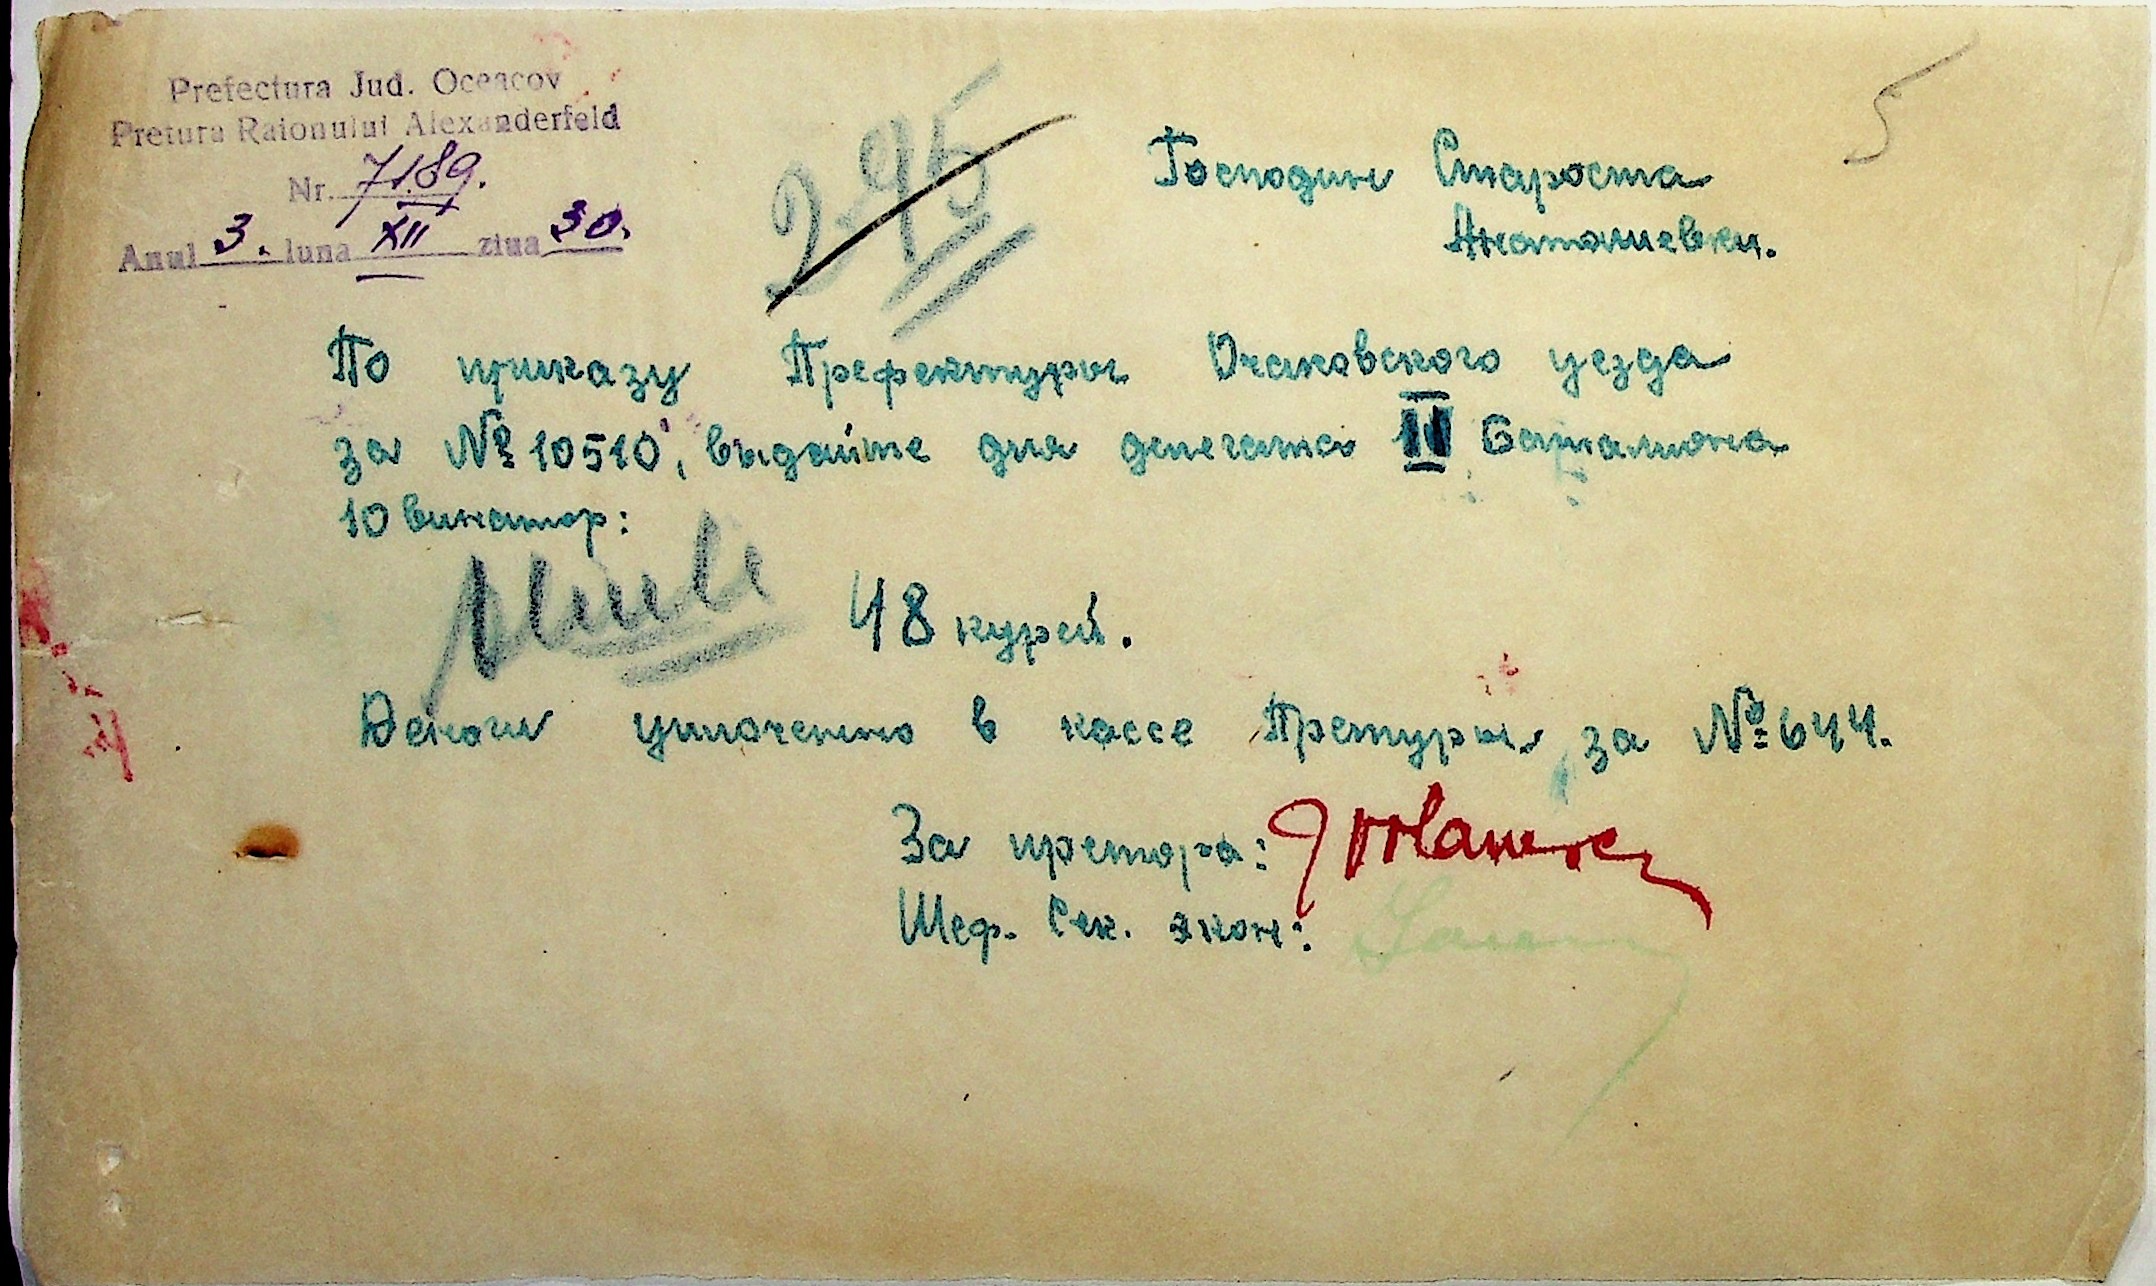 Prefectura Jud. Oceacov
Pretura Raionului Alexanderfeld
Nr. 7189.
Anul 3. luna XII ziua 30.
295
5
Господин Староста
Анатолиевки.
По приказу Префектуры Очаковского уезда
за № 10510, выдайте для делегата II Баталиона
10 винатор:
48 курей.
Деньги уплоченно в кассе Претуры за № 644.
За претора:
Шеф. Сек. экон: